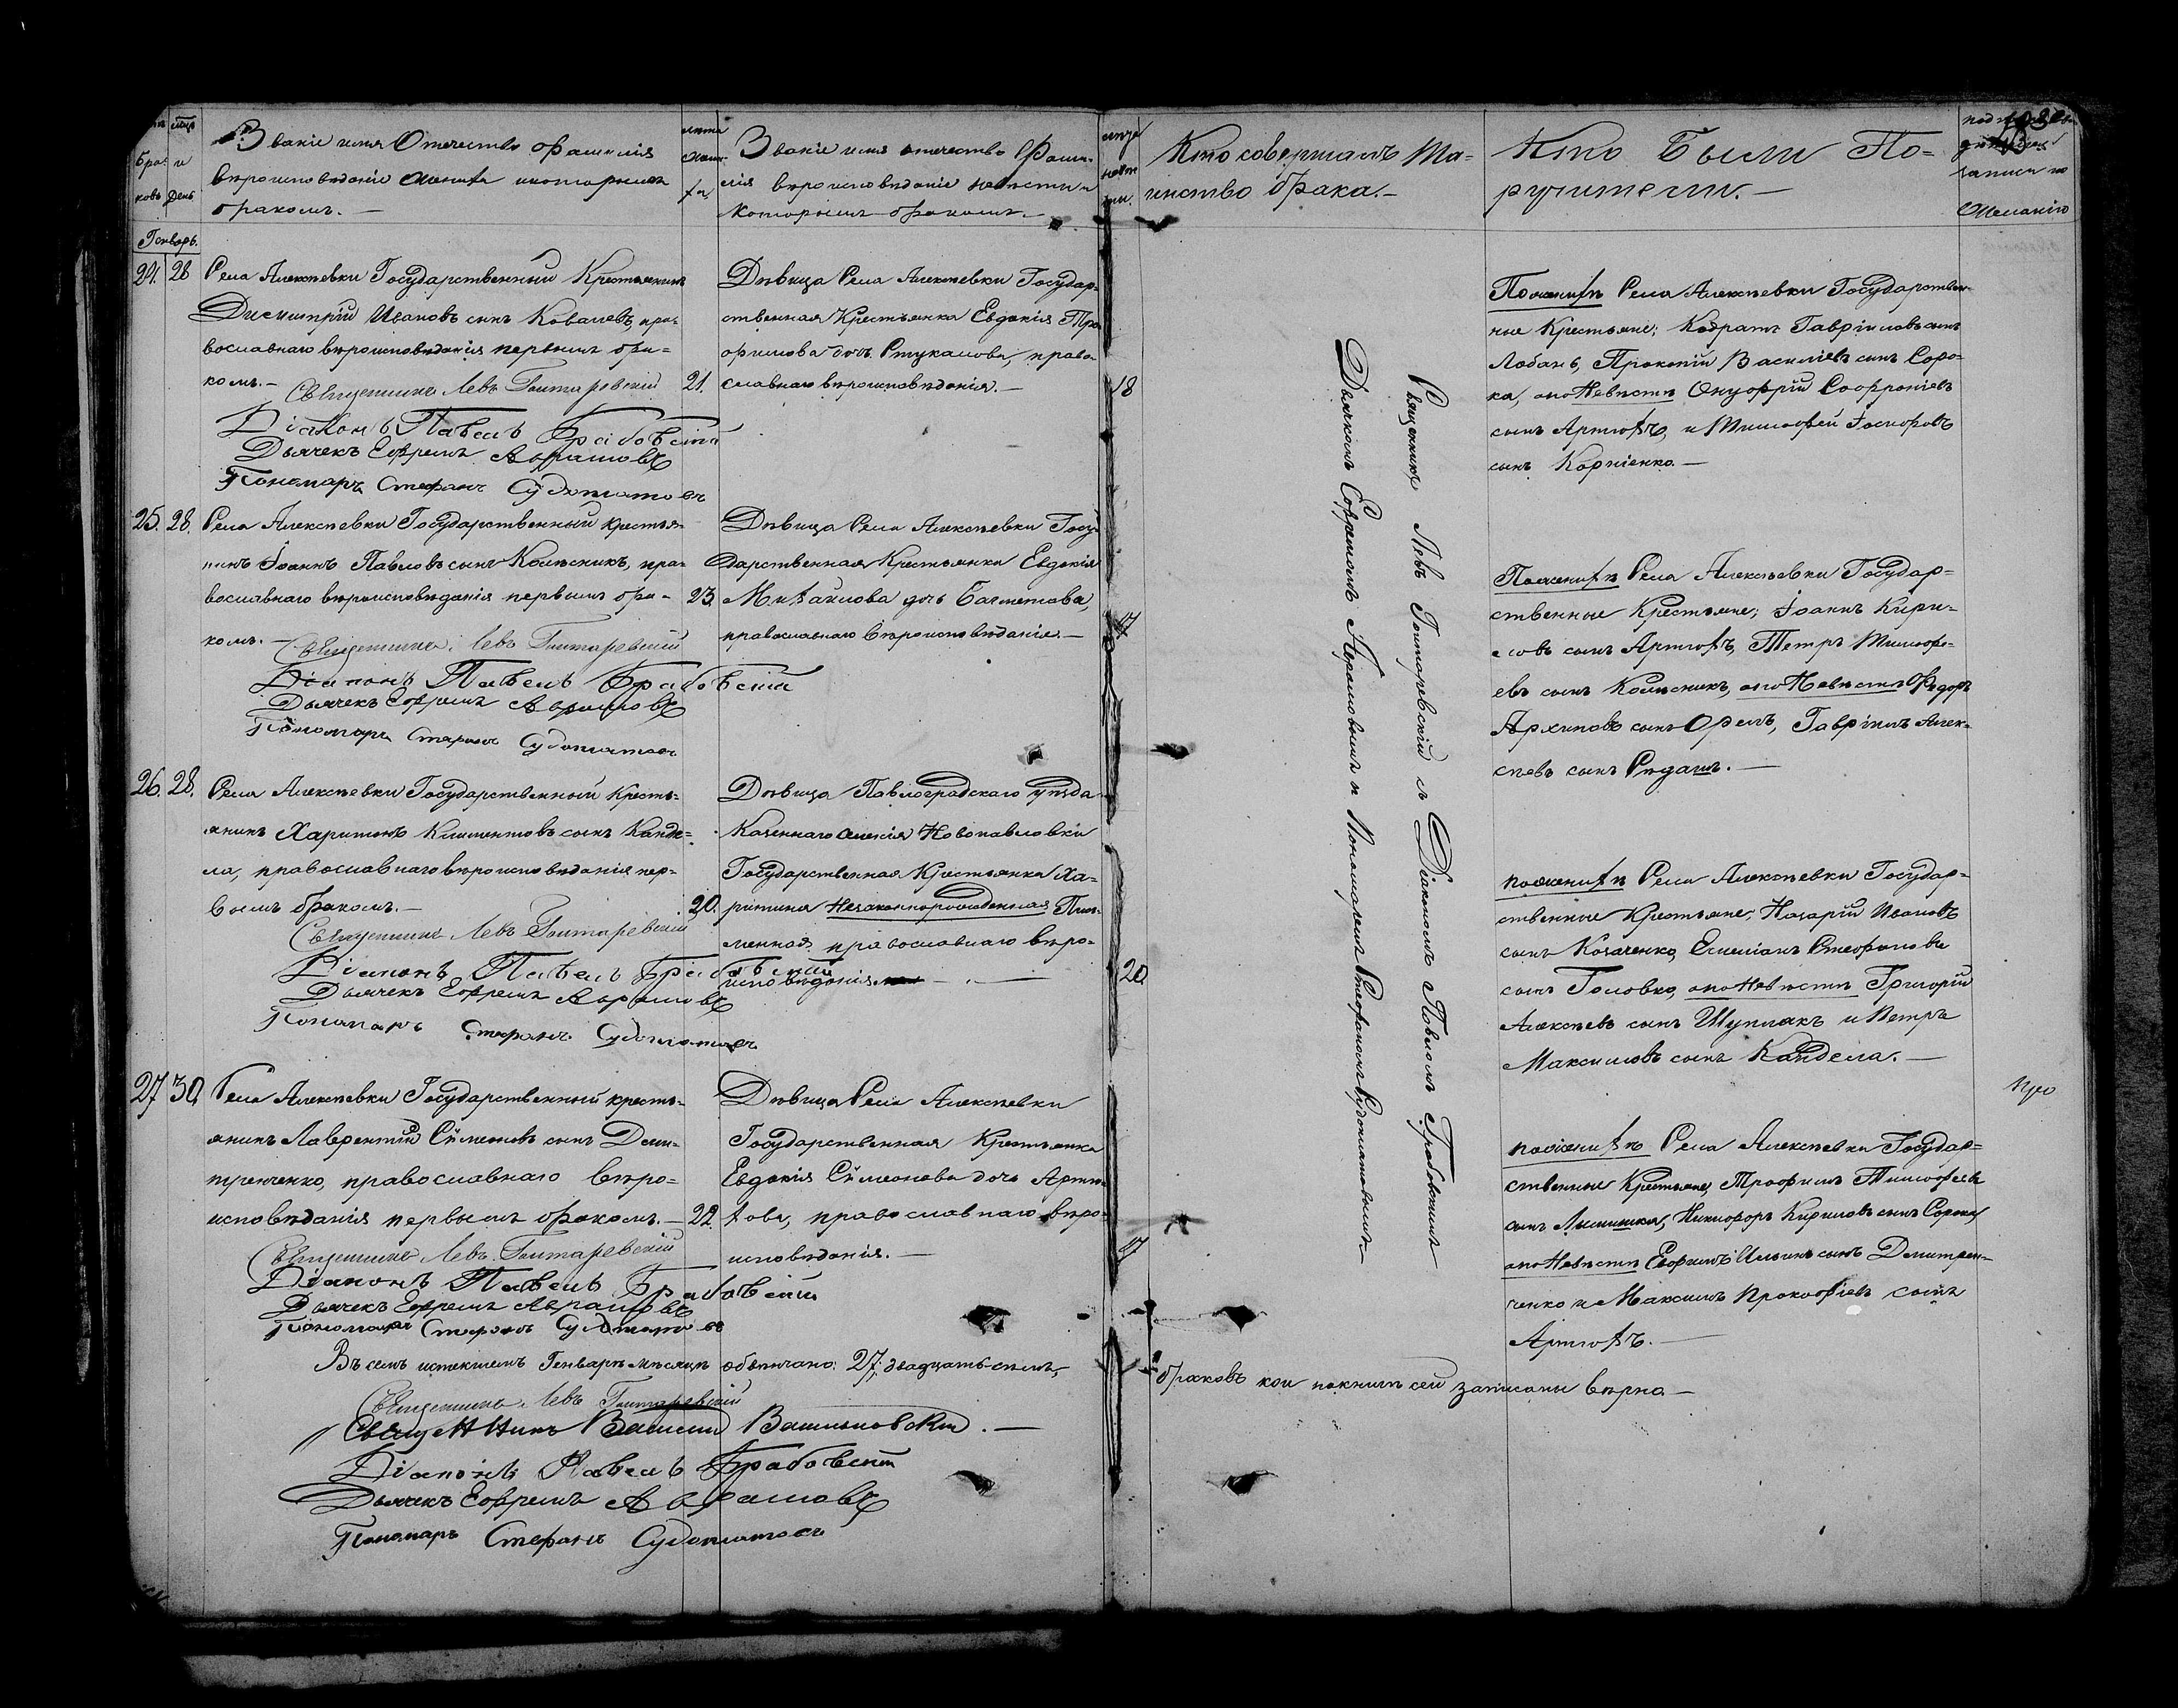 Званіе имя Отечество фамилія
вѣроисповѣданіе жениха и которымъ
бракомъ. —
Званіе имя отечество фами-
лія вѣроисповѣданіе невѣсты и
которымъ бракомъ. —
Кто совершалъ Та-
инство брака. —
Кто Были По-
ручители. —
записи по
Желанію
бра-
ковъ
и
день
Генварь.
24. 28
Села Алексѣевки Государственный Крестьянинъ
Димитрій Ивановъ сынъ Ковалевъ, пра-
вославнаго вѣроисповѣданія первымъ бра-
комъ. —
Священникъ Левъ Гонтаревскій
Діаконъ Павелъ Грабовскій
Дьячекъ Ефремъ Аврамовъ
Пономарь Стефанъ Судоплатовъ
21.
Дѣвица Села Алексѣевки Государ-
ственная Крестьянка Евдокія Тро-
фимова дочь Стукалова, право-
славнаго вѣроисповѣданія. —
18
Поженихѣ Села Алексѣевки Государствен-
ные Крестьяне; Кодратъ Гавріиловъ сынъ
Лобань, Прокопій Василіевъ сынъ Соро-
ка, апо Невѣстѣ Онуфрій Софроніевъ
сынъ Артюхъ, и Тимофей
сынъ Корніенко. —
25. 28.
Села Алексѣевки Государственный крестья-
нинъ Іоаннъ Павловъ сынъ Колѣсникъ, пра-
вославнаго вѣроисповѣданія первымъ бра-
комъ. —
Священникъ Левъ Гонтаревскій
Діаконъ Павелъ Грабовскій
Дьячекъ Ефремъ Аврамовъ
Пономарь Стефанъ Судоплатовъ
23.
Дѣвица Села Алексѣевки Госу-
дарственная Крестьянка Евдокія
Михайлова дочь Бахметова,
православнаго вѣроисповѣданіе. —
17
Поженихѣ Села Алексѣевки Государ-
ственные Крестьяне; Іоаннъ Кири-
ловъ сынъ Артюхъ, Петръ Тимофе-
евъ сынъ Колѣсникъ, апо Невѣстѣ Ѳедоръ
Архиповъ сынъ Орелъ, Гавріилъ Алек-
сѣевъ сынъ
26. 28.
Села Алексѣевки Государственный Кресть-
янинъ Харитонъ Климентовъ сынъ Канде-
ла, православнаго вѣроисповѣданія пер-
вымъ бракомъ. —
Священникъ Левъ Гонтаревскій
Діаконъ Павелъ Грабовскій
Дьячекъ Ефремъ Аврамовъ
Пономарь Стефанъ Судоплатовъ
20.
Дѣвица Павлоградскаго уѣзда
Казеннаго селенія Новопавловки
Государственная Крестьянка Ха-
ритина Незаконнорожденная
православнаго вѣро-
исповѣданія
20
поженихѣ Села Алексѣевки Государ-
ственные Крестьяне; Назарій Ивановъ
сынъ Козаченко, Емеліанъ Стефановъ
сынъ Головко, апо Невѣстѣ Григорій
Алексѣевъ сынъ Шуплякъ и Петръ
Максимовъ сынъ Кандела. —
27 30
Села Алексѣевки Государственный кресть-
янинъ Лаврентій Сѵмеоновъ сынъ Дми-
тренченко, православнаго вѣро-
исповѣданія первымъ бракомъ. —
Священникъ Левъ Гонтаревскій
Діаконъ Павелъ Грабовскій
Дьячекъ Ефремъ Аврамовъ
Пономарь Стефанъ Судоплатовъ
22.
Дѣвица Села Алексѣевки
Государственная Крестьянка
Евдокія Сѵмеонова дочь Артю-
хова, православнаго вѣро-
исповѣданія. —
17
поженихѣ Села Алексѣевки Государ-
ственные Крестьяне, Трофимъ Тимофеевъ
сынъ Никифоръ Кириловъ сынъ Сорока,
апо Невѣстѣ Ефимъ Ильинъ сынъ Дмитрен-
ченко и Максимъ Прокофіевъ сынъ
Артюхъ. —
Священникъ Левъ Гонтаревскій съ Діакономъ Павломъ Грабовскимъ
Дьячкомъ Ефремомъ Аврамовымъ и Пономаремъ Стефаномъ Судоплатовымъ
Въ семъ истекшемъ Генварѣ мѣсяцѣ обвѣнчано: 27, двадцать семь, браковъ кои покнигѣ сей записаны вѣрно —
Священникъ Левъ Гонтаревскій
Священникъ Василій Вашиновскій. —
Діаконъ Павелъ Грабовскій
Дьячекъ Ефремъ Аврамовъ
Пономарь Стефанъ Судоплатовъ